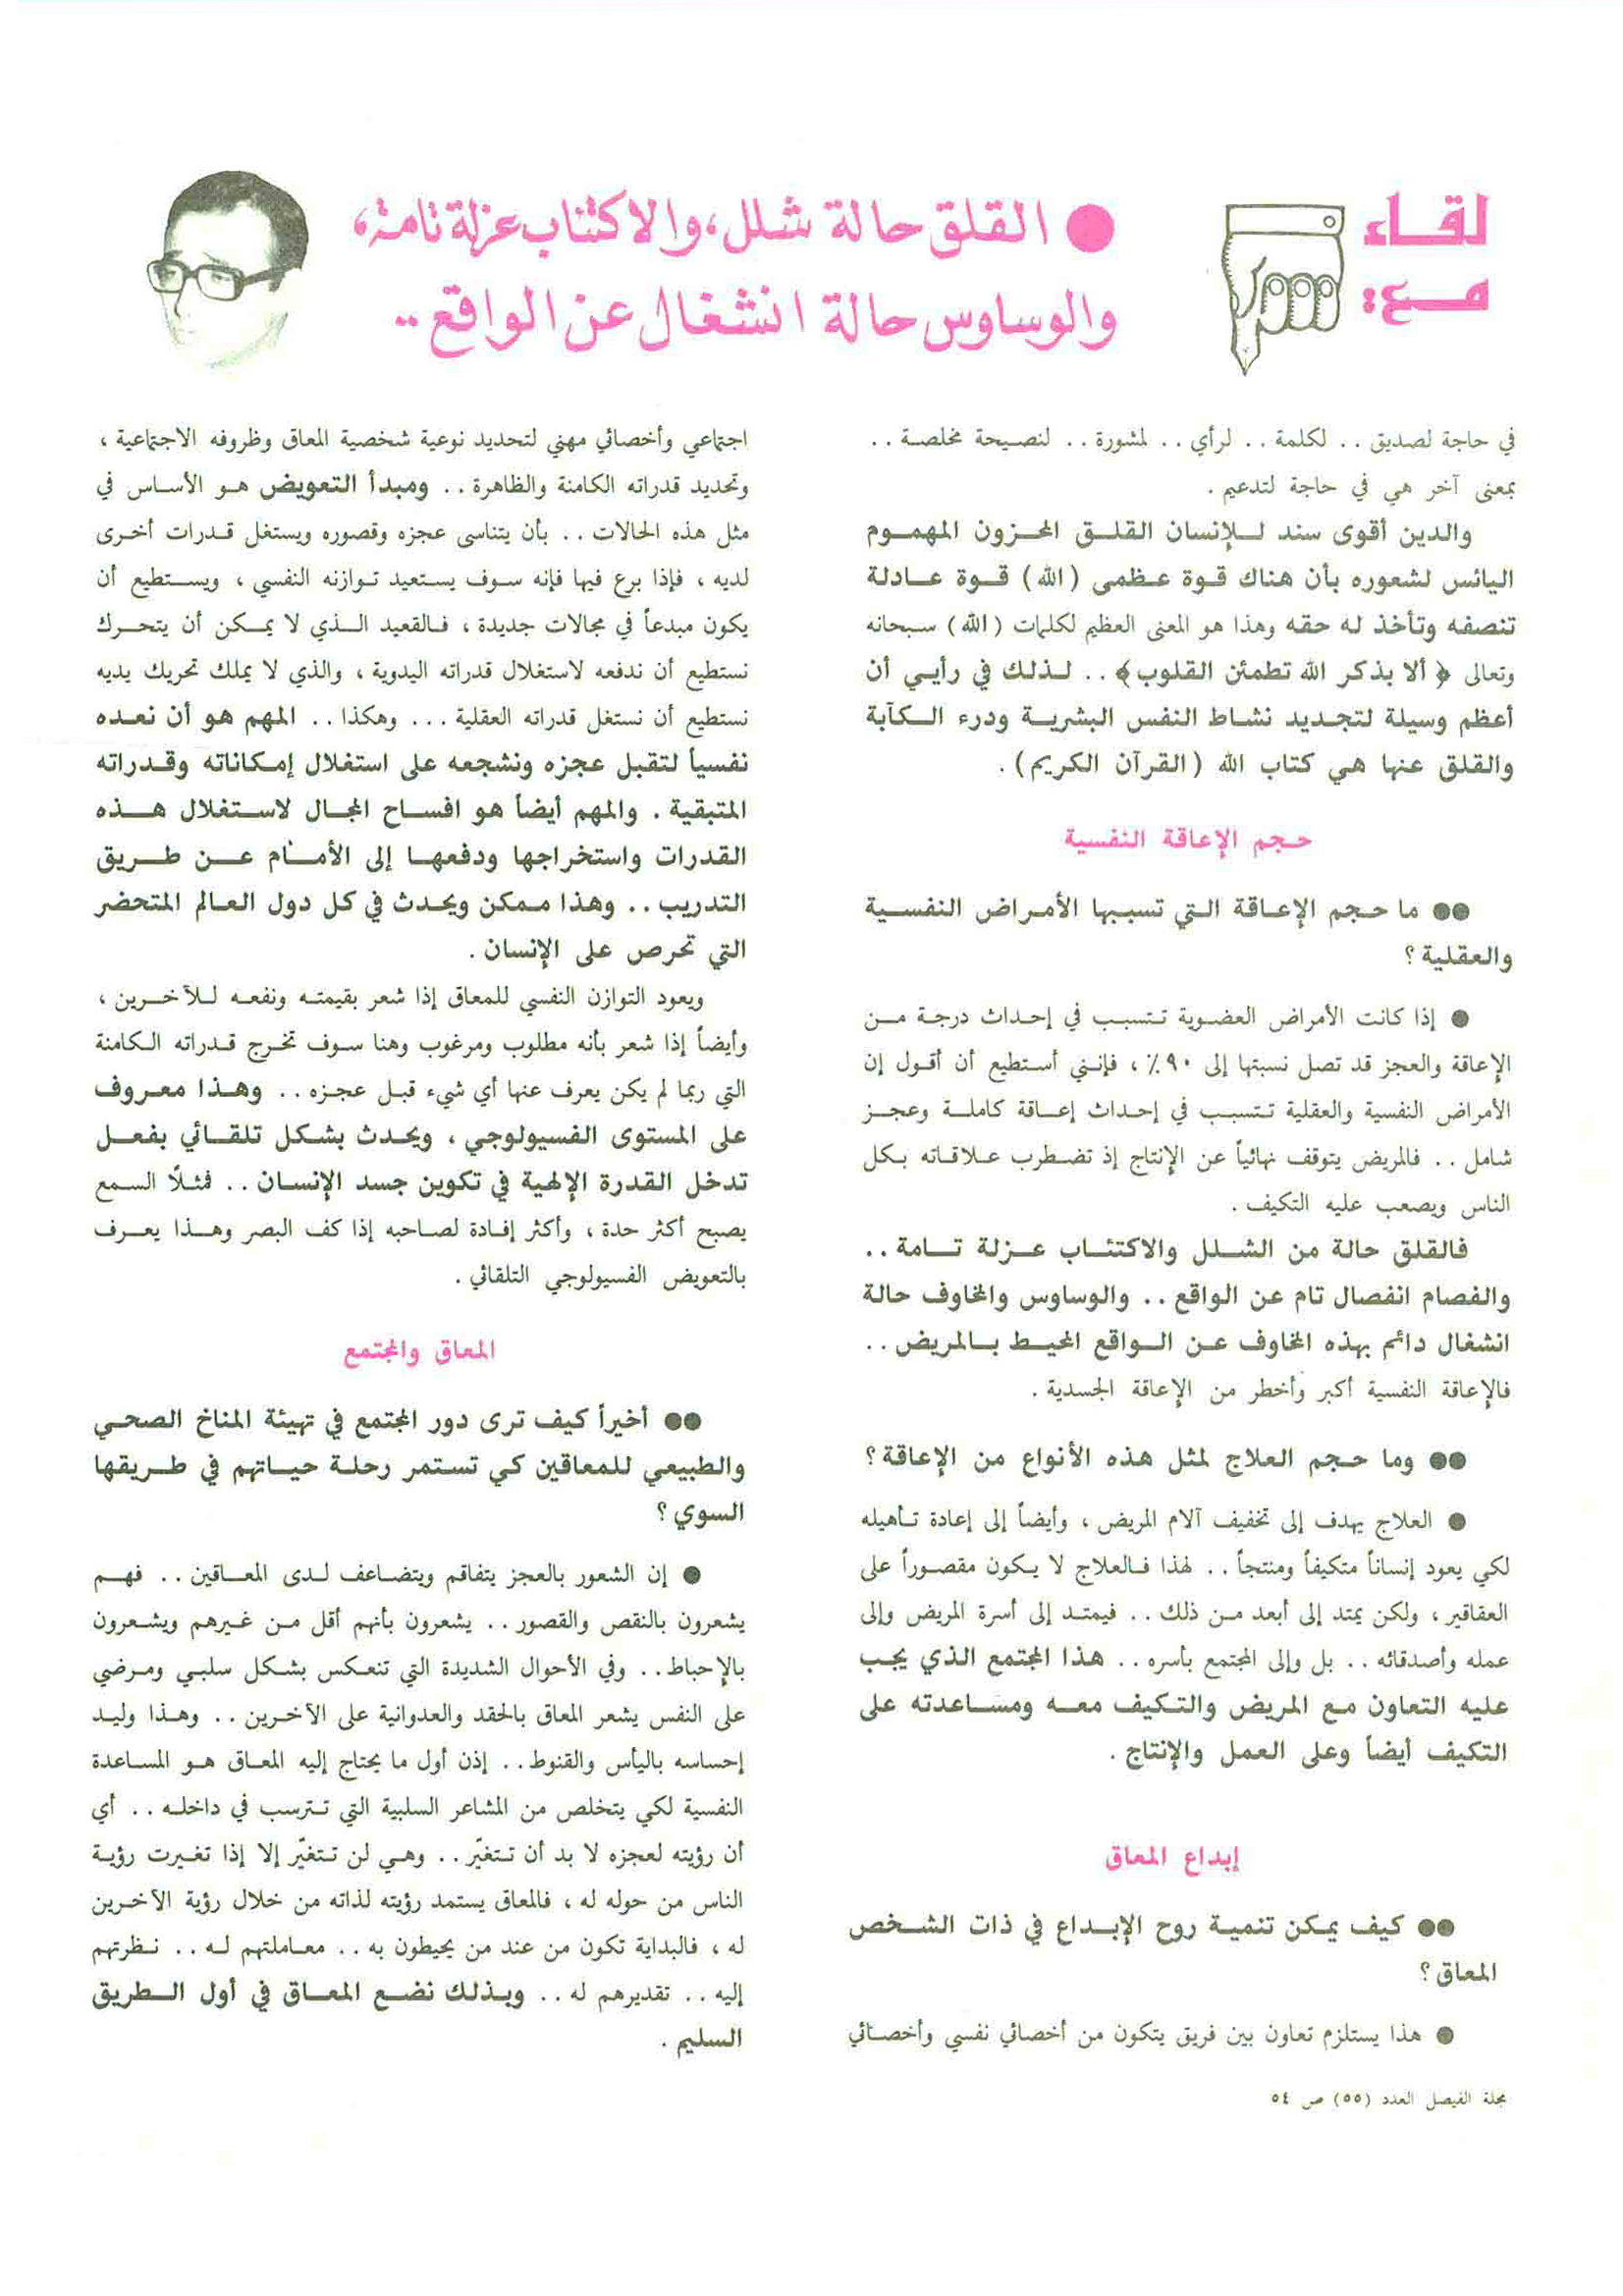 لقاء
مع:
● القلق حالة شلل، والاكتئاب عزلة تامة،
والوساوس حالة انشغال عن الواقع ..
في حاجة لصديق .. لكلمة .. لرأي .. لمشورة .. لنصيحة مخلصة ..
بمعنى آخر هي في حاجة لتدعيم .
والدين أقوى سند للإنسان القلق المحزون المهموم
اليائس لشعوره بأن هناك قوة عظمى (الله) قوة عادلة
تنصفه وتأخذ له حقه وهذا هو المعنى العظيم لكلمات (الله) سبحانه
وتعالى ﴿ ألا بذكر الله تطمئن القلوب﴾ .. لذلك في رأيي أن
أعظم وسيلة لتجديد نشاط النفس البشرية ودرء الكآبة
والقلق عنها هي كتاب الله (القرآن الكريم) .
حجم الإعاقة النفسية
●● ما حجم الإعاقة التي تسببها الأمراض النفسية
والعقلية ؟
● إذا كانت الأمراض العضوية تتسبب في إحداث درجة من
الإعاقة والعجز قد تصل نسبتها إلى ٩٠٪ ، فإنني أستطيع أن أقول إن
الأمراض النفسية والعقلية تتسبب في إحداث إعاقة كاملة وعجز
شامل .. فالمريض يتوقف نهائياً عن الإنتاج إذ تضطرب علاقاته بكل
الناس ويصعب عليه التكيف .
فالقلق حالة من الشلل والاكتئاب عزلة تامة ..
والفصام انفصال تام عن الواقع .. والوساوس والمخاوف حالة
انشغال دائم بهذه المخاوف عن الواقع المحيط بالمريض ..
فالإعاقة النفسية أكبر وأخطر من الإعاقة الجسدية .
●● وما حجم العلاج لمثل هذه الأنواع من الإعاقة ؟
● العلاج يهدف إلى تخفيف آلام المريض ، وأيضاً إلى إعادة تأهيله
لكي يعود إنساناً متكيفاً ومنتجاً .. لهذا فالعلاج لا يكون مقصوراً على
العقاقير ، ولكن يمتد إلى أبعد من ذلك .. فيمتد إلى أسرة المريض وإلى
عمله وأصدقائه .. بل وإلى المجتمع بأسره .. هذا المجتمع الذي يجب
عليه التعاون مع المريض والتكيف معه ومساعدته على
التكيف أيضاً وعلى العمل والإنتاج .
إبداع المعاق
●● كيف يمكن تنمية روح الإبداع في ذات الشخص
المعاق ؟
● هذا يستلزم تعاون بين فريق يتكون من أخصائي نفسي وأخصائي
اجتماعي وأخصائي مهني لتحديد نوعية شخصية المعاق وظروفه الاجتماعية ،
وتحديد قدراته الكامنة والظاهرة .. ومبدأ التعويض هو الأساس في
مثل هذه الحالات .. بأن يتناسى عجزه وقصوره ويستغل قدرات أخرى
لديه ، فإذا برع فيها فإنه سوف يستعيد توازنه النفسي ، ويستطيع أن
يكون مبدعاً في مجالات جديدة ، فالقعيد الذي لا يمكن أن يتحرك
نستطيع أن ندفعه لاستغلال قدراته اليدوية ، والذي لا يملك تحريك يديه
نستطيع أن نستغل قدراته العقلية ... وهكذا .. المهم هو أن نعده
نفسياً لتقبل عجزه ونشجعه على استغلال إمكاناته وقدراته
المتبقية . والمهم أيضاً هو افساح المجال لاستغلال هذه
القدرات واستخراجها ودفعها إلى الأمام عن طريق
التدريب .. وهذا ممكن ويحدث في كل دول العالم المتحضر
التي تحرص على الإنسان .
ويعود التوازن النفسي للمعاق إذا شعر بقيمته ونفعه للآخرين ،
وأيضاً إذا شعر بأنه مطلوب ومرغوب وهنا سوف تخرج قدراته الكامنة
التي ربما لم يكن يعرف عنها أي شيء قبل عجزه .. وهذا معروف
على المستوى الفسيولوجي ، ويحدث بشكل تلقائي بفعل
تدخل القدرة الإلهية في تكوين جسد الإنسان .. فمثلاً السمع
يصبح أكثر حدة ، وأكثر إفادة لصاحبه إذا كف البصر وهذا يعرف
بالتعويض الفسيولوجي التلقائي .
المعاق والمجتمع
●● أخيراً كيف ترى دور المجتمع في تهيئة المناخ الصحي
والطبيعي للمعاقين كي تستمر رحلة حياتهم في طريقها
السوي ؟
● إن الشعور بالعجز يتفاقم ويتضاعف لدى المعاقين .. فهم
يشعرون بالنقص والقصور .. يشعرون بأنهم أقل من غيرهم ويشعرون
بالإحباط .. وفي الأحوال الشديدة التي تنعكس بشكل سلبي ومرضي
على النفس يشعر المعاق بالحقد والعدوانية على الآخرين .. وهذا وليد
إحساسه باليأس والقنوط .. إذن أول ما يحتاج إليه المعاق هو المساعدة
النفسية لكي يتخلص من المشاعر السلبية التي تترسب في داخله .. أي
أن رؤيته لعجزه لا بد أن تتغيّر .. وهي لن تتغيّر إلا إذا تغيرت رؤية
الناس من حوله له ، فالمعاق يستمد رؤيته لذاته من خلال رؤية الآخرين
له ، فالبداية تكون من عند من يحيطون به .. معاملتهم له .. نظرتهم
إليه .. تقديرهم له .. وبذلك نضع المعاق في أول الطريق
السليم .
مجلة الفيصل العدد (٥٥) ص ٥٤